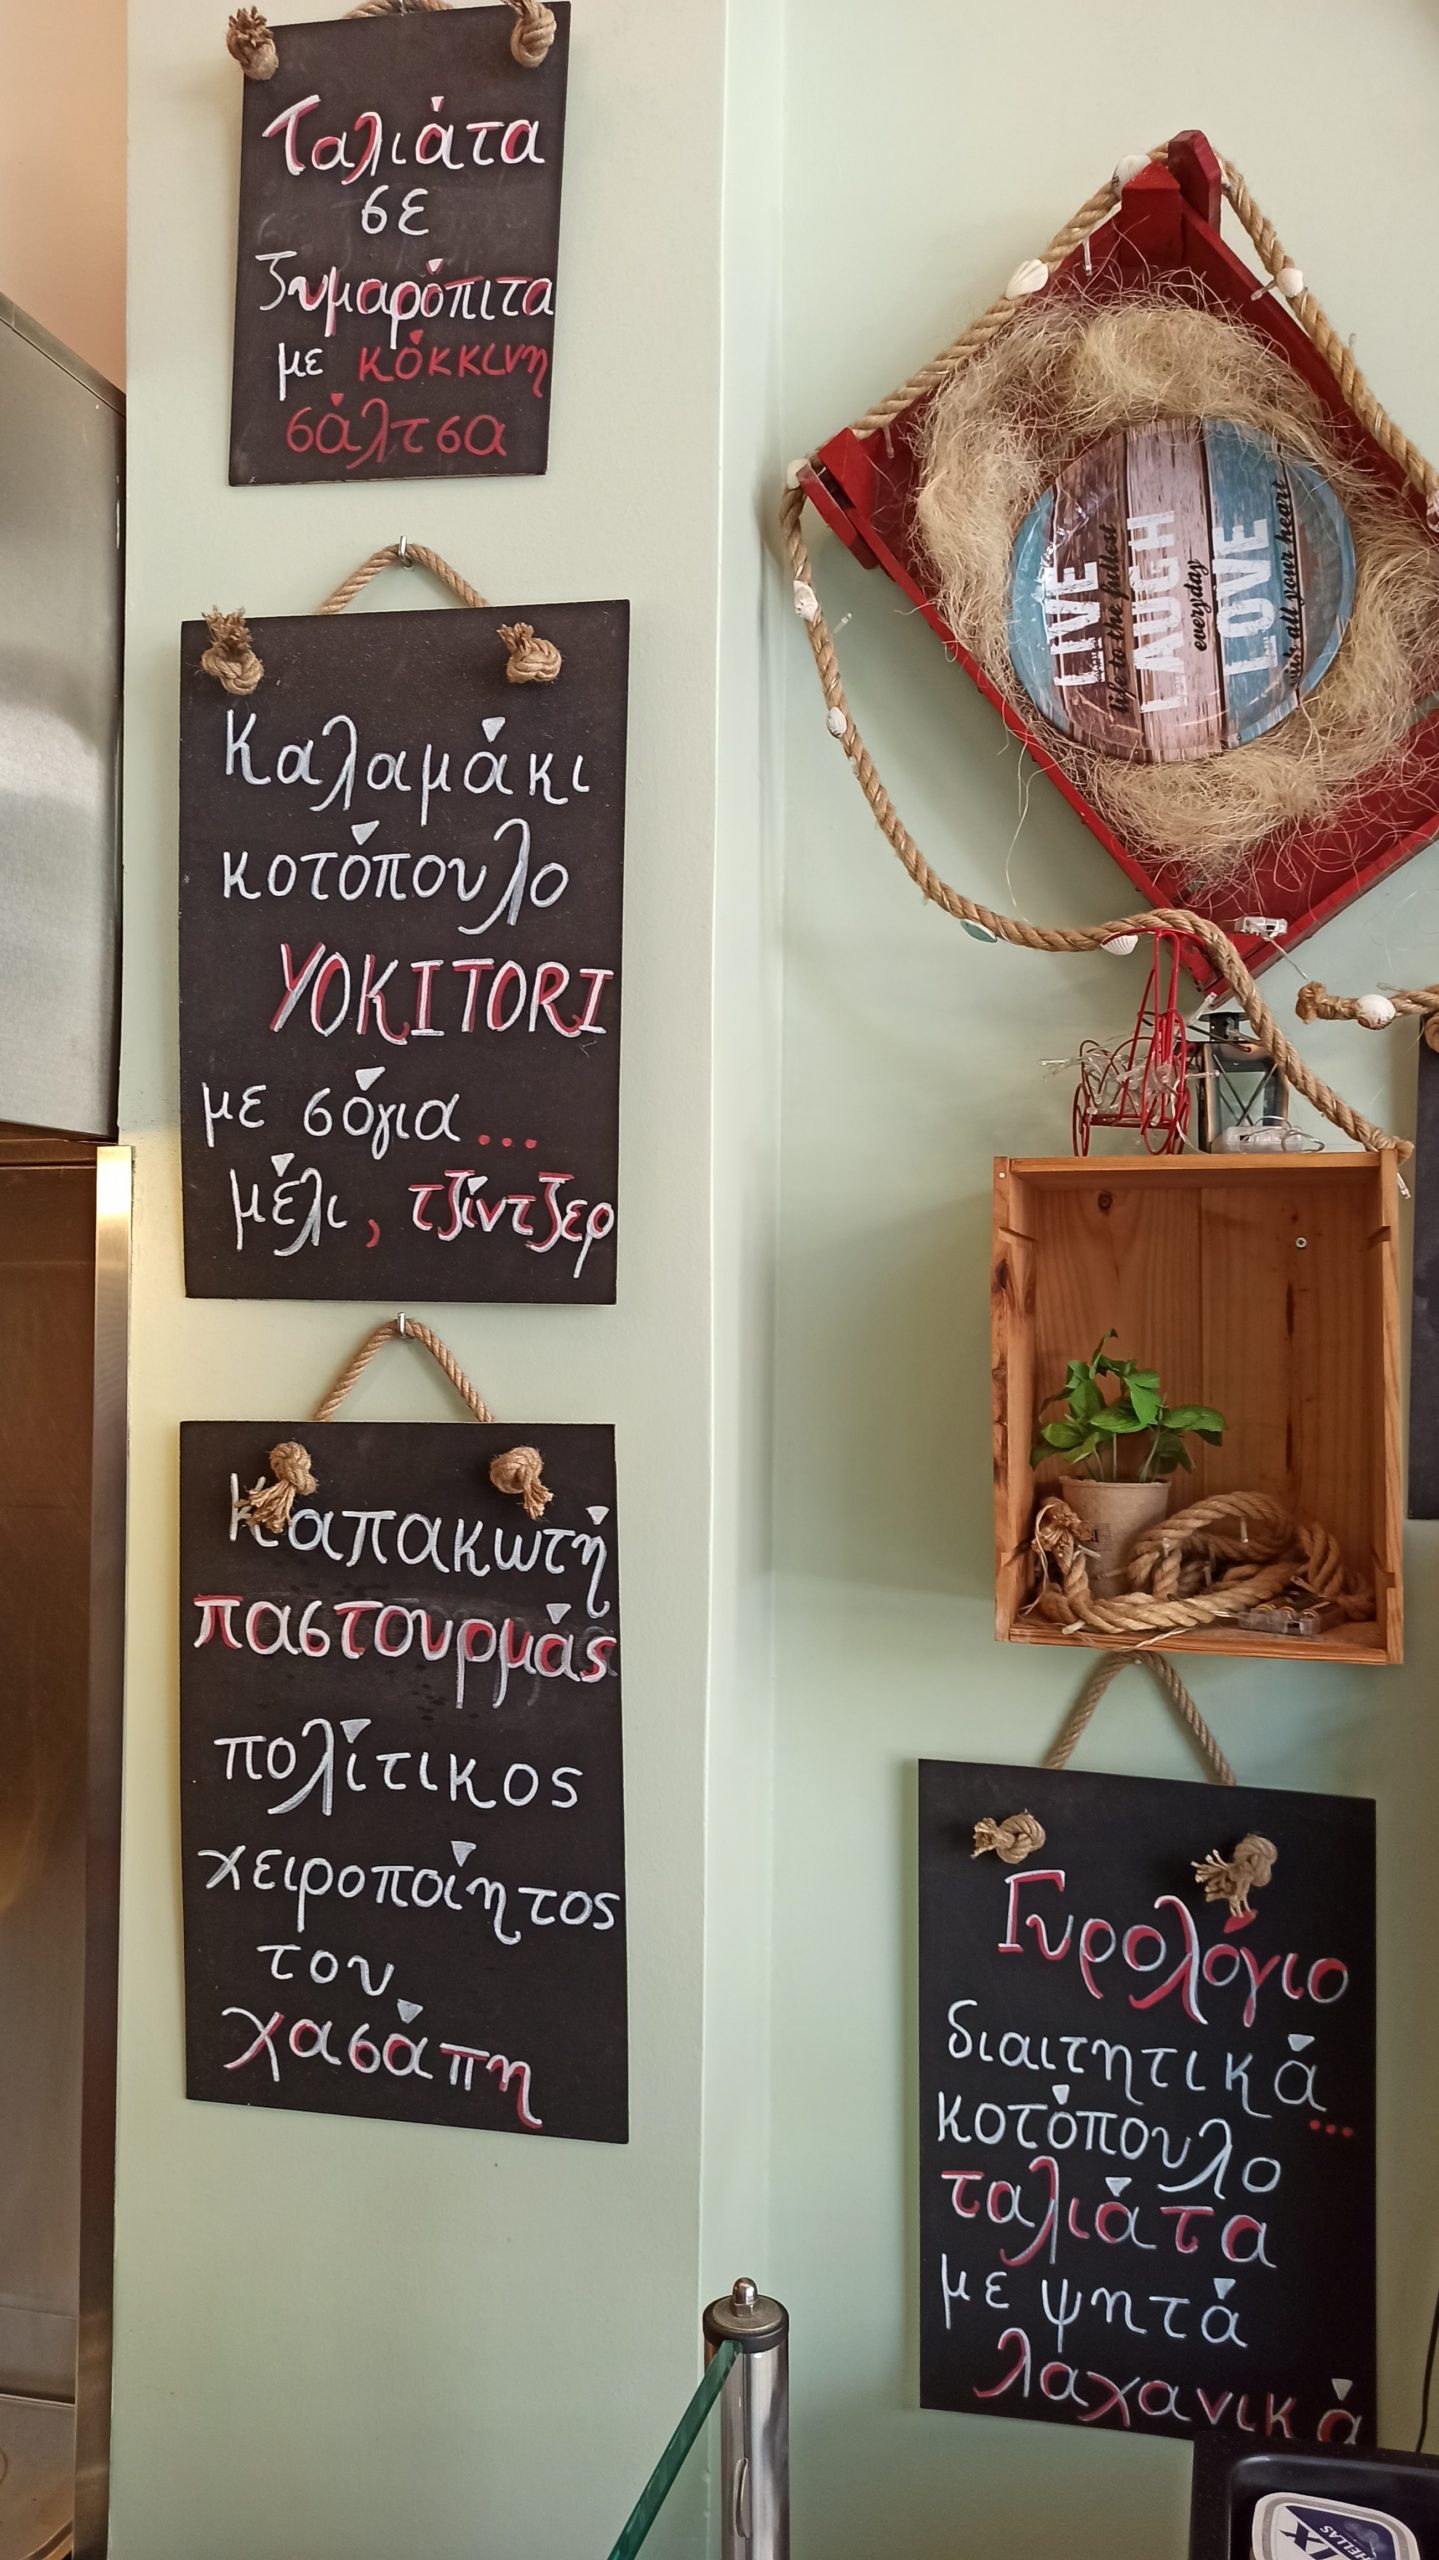 Ταλιάτα
σε
ζυμαρόπιτα
με κόκκινη
σάλτσα
Καλαμάκι
κοτόπουλο
YOKITORI
με σόγια...
μέλι, τζίντζερ
Καπακωτή
παστουρμάς
πολίτικος
χειροποίητος
του
χασάπη
LIVE
life to the fullest
LAUGH
everyday
LOVE
all your heart
Γυρολόγιο
διαιτητικά...
κοτόπουλο
ταλιάτα
με ψητά
λαχανικά
HELLAS